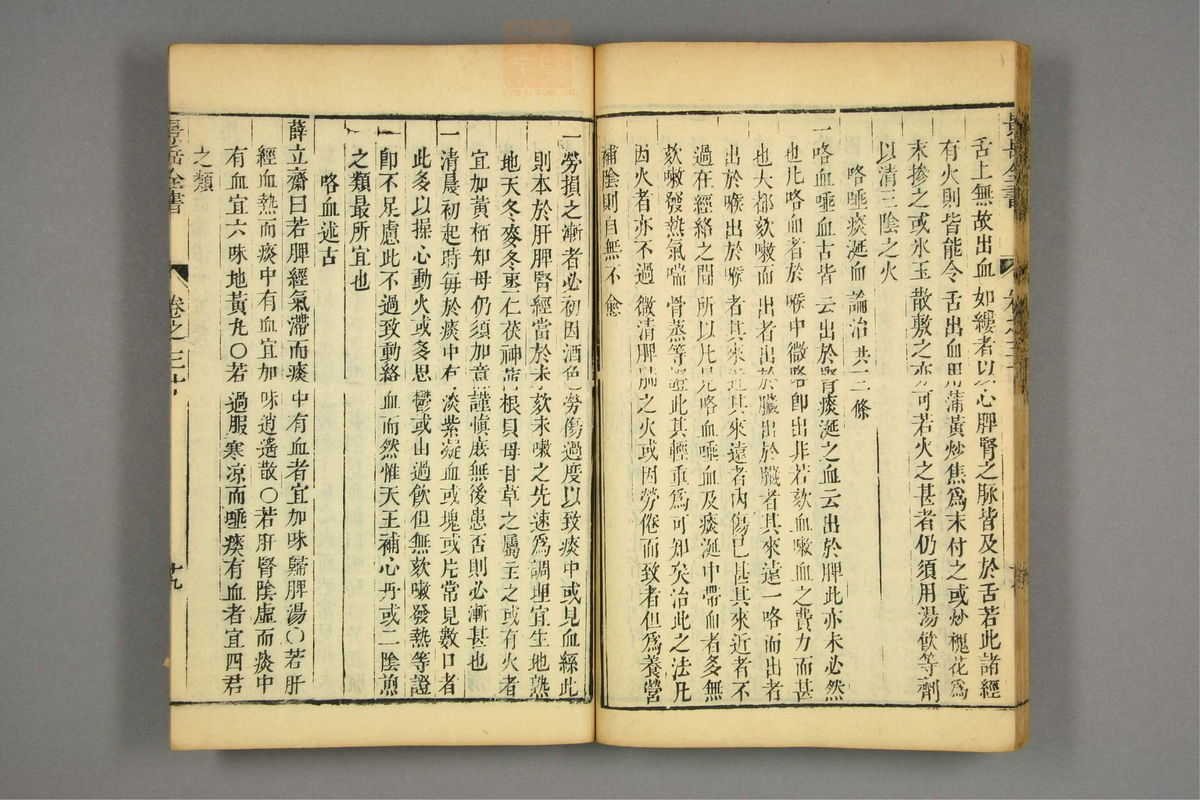 景岳全書
舌上無故出血如縷者以心脾腎之脉皆及於舌若此諸經
有火則皆能令舌出血用蒲黃炒焦爲末付之或炒槐花爲
末摻之或氷玉散敷之亦可若火之甚者仍須用湯飲等劑
以清三陰之火
咯唾痰涎血論治共三條
一咯血唾血古皆云出於腎痰涎之血云出於脾此亦未必然
也凡咯血者於喉中微咯卽出非若欬血嗽血之費力而甚
也大都欬嗽而出者出於臟出於臟者其來遠一咯而出者
出於喉出於喉者其來近其來遠者內傷已甚其來近者不
過在經絡之間所以凡見咯血唾血及痰涎中帶血者多無
欬嗽發熱氣喘骨蒸等證此其輕重爲可知矣治此之法凡
因火者亦不過微清脾肺之火或因勞倦而致者但爲養營
補陰則自無不愈
一勞損之漸者必初因酒色勞傷過度以致痰中或見血絲此
則本於肝脾腎經當於未欬未嗽之先速爲調理宜生地熟
地天冬麥冬棗仁茯神茜根貝母甘草之屬主之或有火者
宜加黃栢知母仍須加意謹愼庻無後患否則必漸甚也
一清晨初起時每於痰中有淡紫凝血或塊或片常見數口者
此多以操心動火或多思鬱或由過飲但無欬嗽發熱等證
卽不足慮此不過致動絡血而然惟天王補心丹或二陰煎
之類最所宜也
咯血述古
薛立齋曰若脾經氣滯而痰中有血者宜加味歸脾湯○若肝
經血熱而痰中有血宜加味逍遙散○若肝腎陰虛而痰中
有血宜六味地黃丸○若過服寒凉而唾痰有血者宜四君
之類
景岳全書
卷之三十
廿九